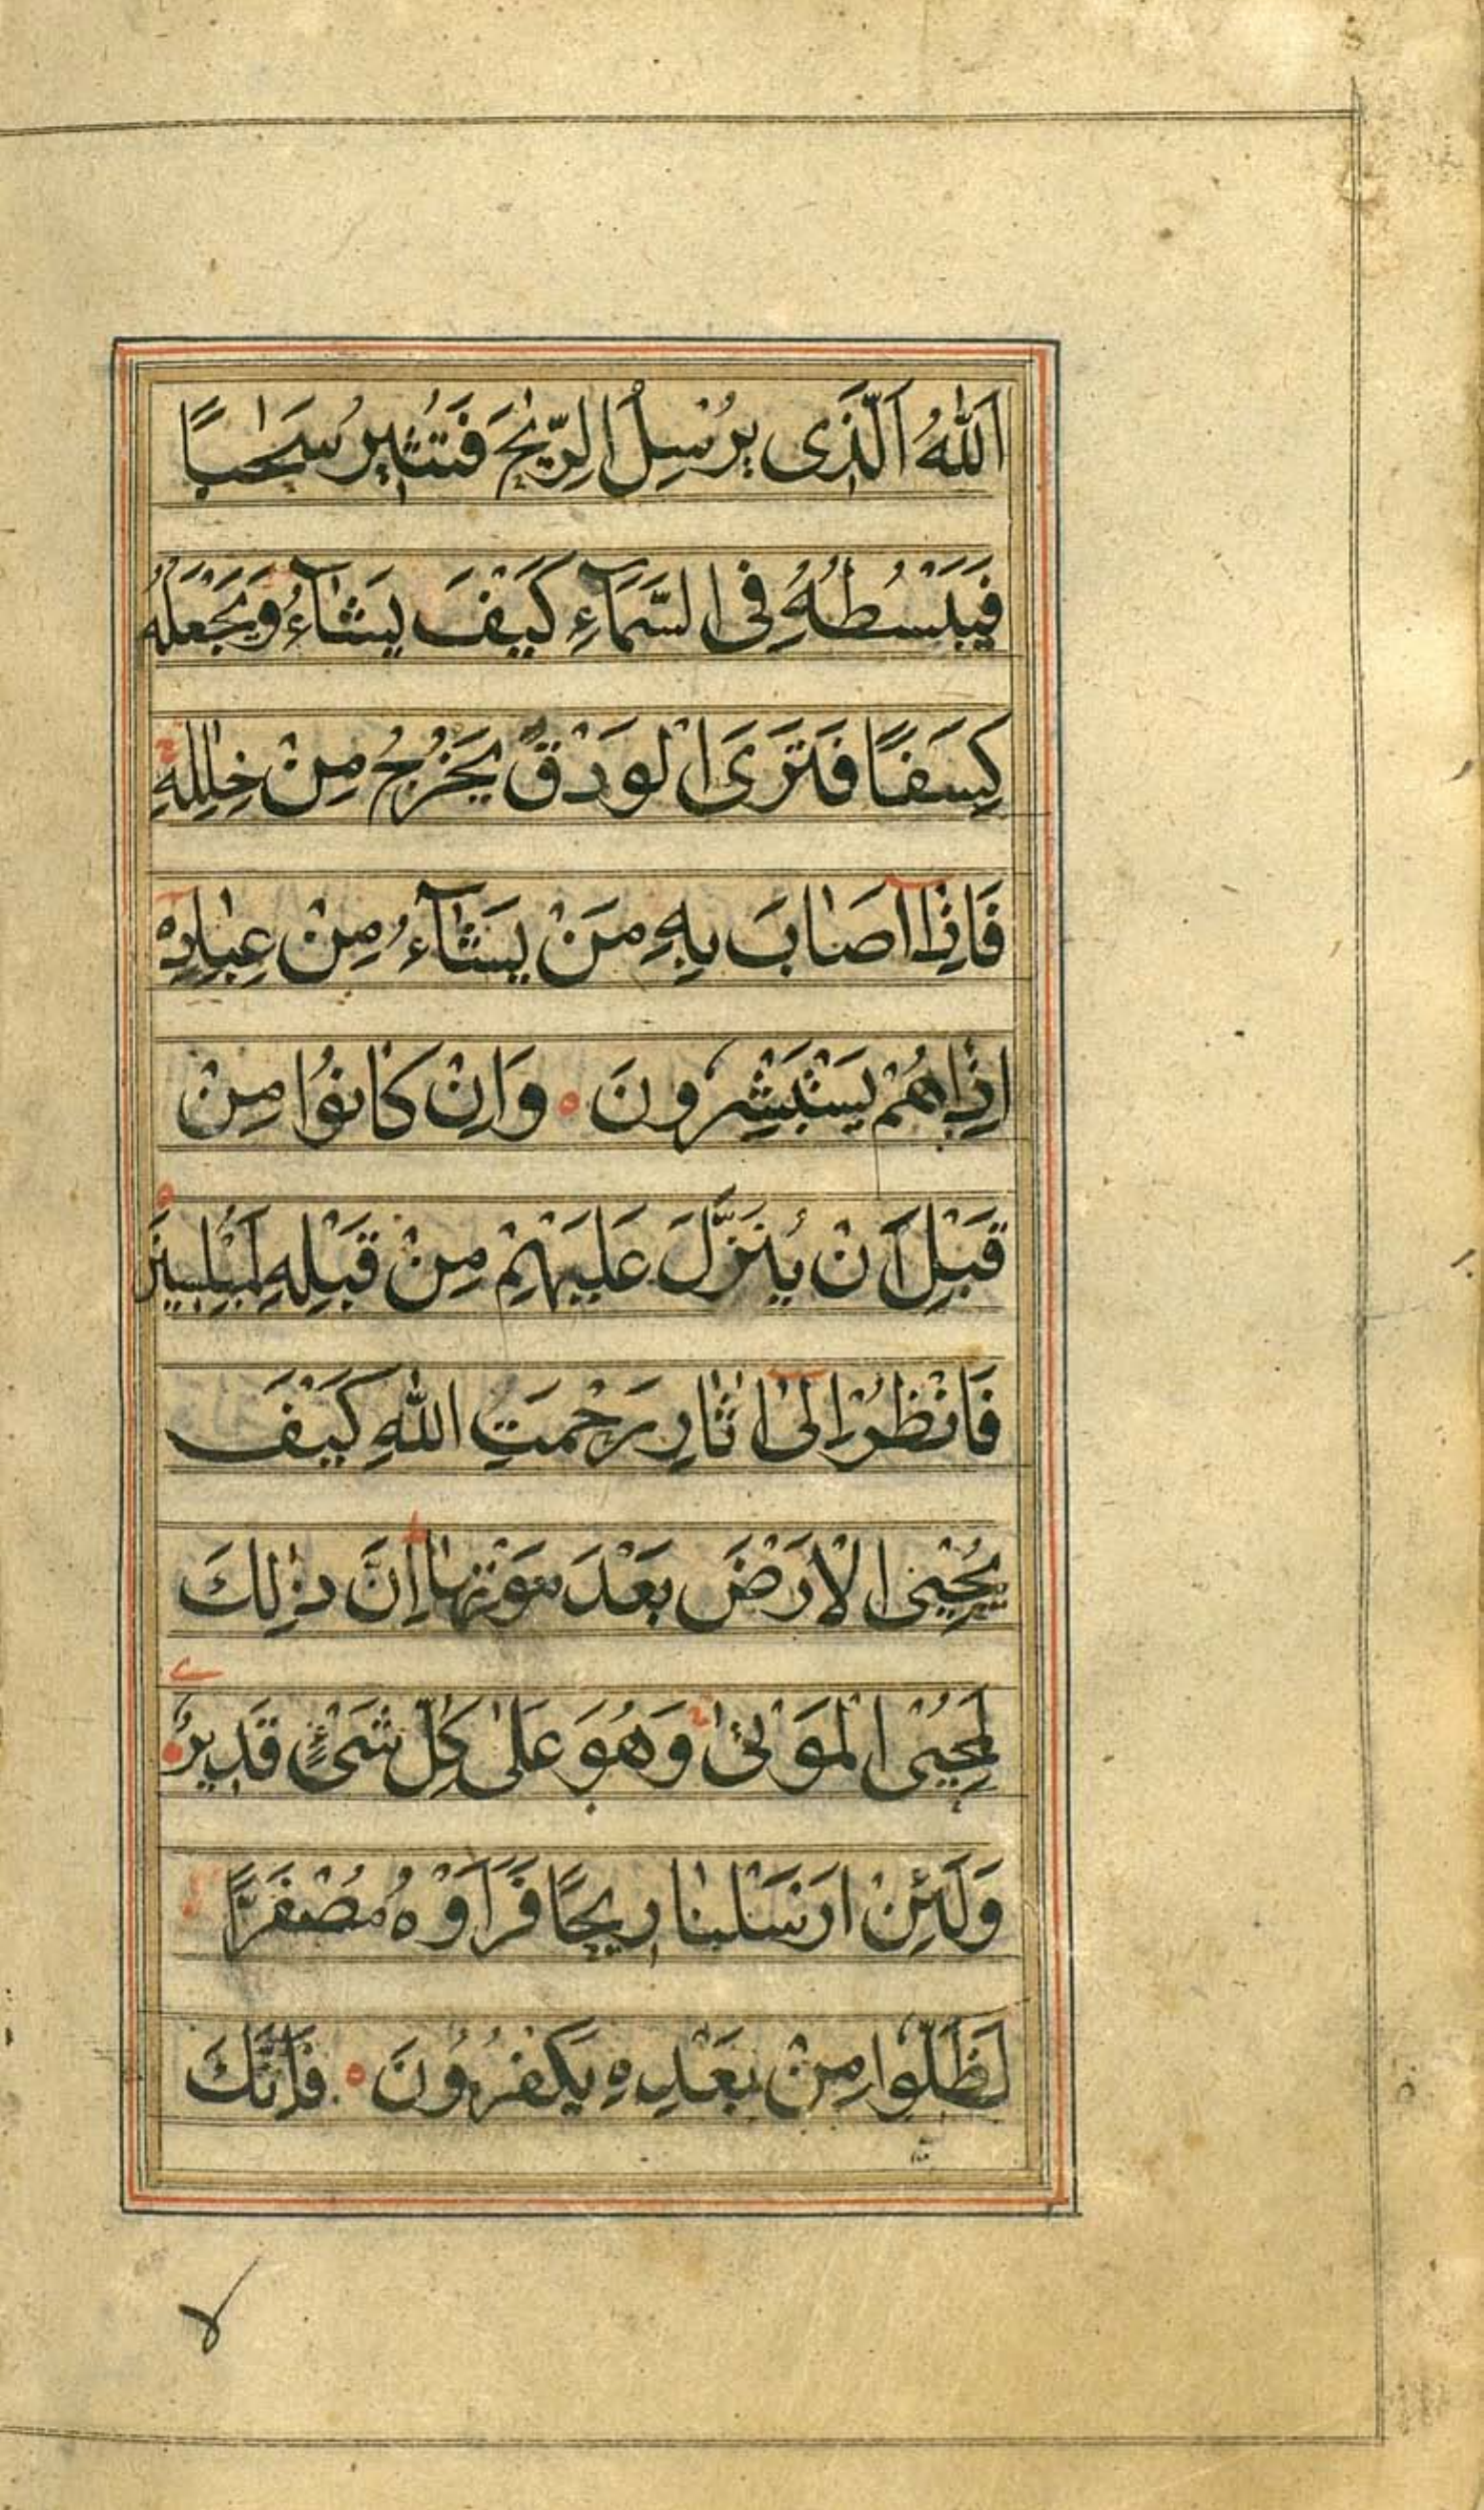 اَللّٰهُ الَّذِی یُرْسِلُ الرِّیٰحَ فَتُثِیْرُ سَحَابًا
فَیَبْسُطُهٗ فِی السَّمَآءِ كَیْفَ یَشَآءُ وَیَجْعَلُهٗ
كِسَفًا فَتَرَی الْوَدْقَ یَخْرُجُ مِنْ خِلٰلِهٖ
فَاِذَآ اَصَابَ بِهٖ مَنْ یَشَآءُ مِنْ عِبَادِهٖ
اِذَا هُمْ یَسْتَبْشِرُونَ وَاِنْ كَانُوْا مِنْ
قَبْلِ اَنْ یُنَزَّلَ عَلَیْهِمْ مِنْ قَبْلِهٖ لَمُبْلِسِیْنَ
فَانْظُرْ اِلٰٓی اٰثَارِ رَحْمَتِ اللّٰهِ كَیْفَ
یُحْیِی الْاَرْضَ بَعْدَ مَوْتِهَا اِنَّ ذٰلِكَ
لَمُحْیِی الْمَوْتٰی وَهُوَ عَلٰی كُلِّ شَیْءٍ قَدِیْرٌ
وَلَئِنْ اَرْسَلْنَا رِیْحًا فَرَاَوْهُ مُصْفَرًّا
لَظَلُّوْا مِنْ بَعْدِهٖ یَكْفُرُوْنَ فَاِنَّكَ
لا